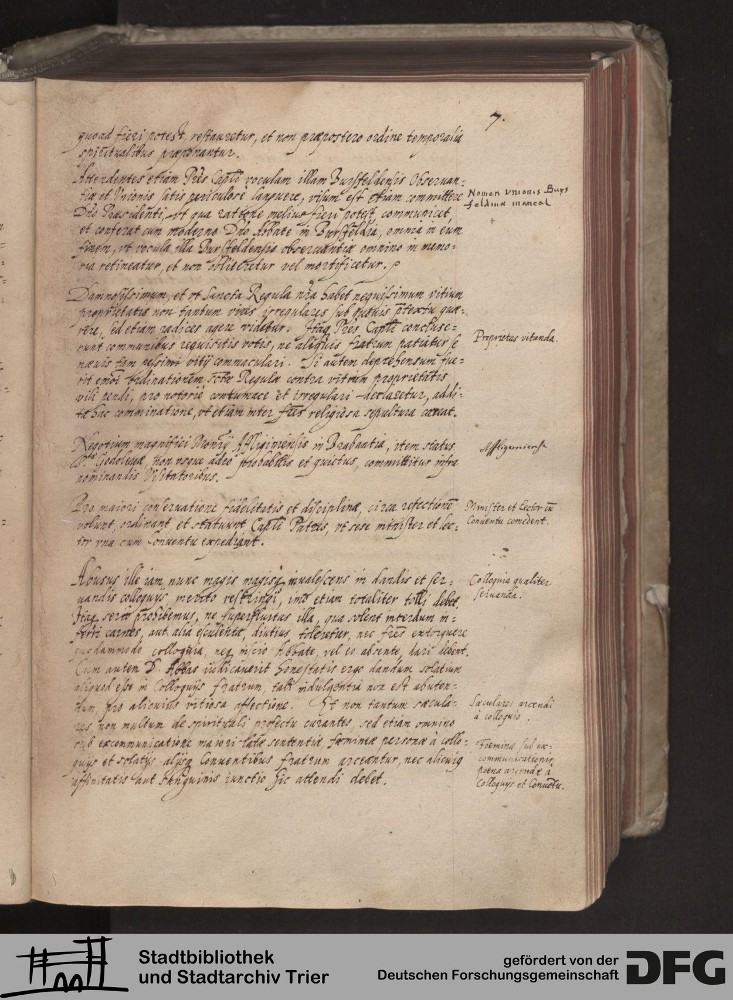 7.
quoad fieri potest, restauretur, et non præpostero ordine temporalia
spiritualibus præponantur.
Attendentes etiam Pres Capli voculam illam Bursfeldensis Observan-
tiæ et Unionis satis periculose languere, visum est etiam committere
Dno Præsidenti, ut qua ratione melius fieri potest, communicet,
et conferat cum moderno Dno Abbate in Bursfeldia, omnia in eum
finem, ut vocula illa Bursfeldensis observantiæ omnino in memo-
ria retineatur, et non obliteretur vel mortificetur.
Nomen unionis Burs
feldinæ maneat
Damnosissimum, et ut Sancta Regula nra habet nequissimum vitium
proprietatis non tantum vires irregulares sub quovis prætextu quæ-
rere, sed etiam radices agere videtur. Itaq Pres Capli concluse-
runt communibus requisitis votis, ne aliquis fratrum patiatur se
nævis tam pessimi vitij commaculari. Si autem deprehensum fue-
rit ordinationem Regulæ contra vitium proprietatis
vili pendi, pro notorie contumace et irregulari declaretur, addi-
ta hac comminatione, ut etiam inter fres religiosa sepultura careat.
Proprietas vitanda.
Negotium magnifici Monrij Affliginensis in Brabantia, item status
Godelevæ, non usque adeo probabilis et quietus, committitur infra
nominandis Visitatoribus.
Affligeniense
Pro maiori conservatione fidelitatis et disciplinæ, circa refectione
volunt, ordinant et statuunt Capli Patres, ut sese minister et lec-
tor una cum Conventu expediant.
Minister et Lector cu
Conventu comedent.
Abusus ille iam nunc magis magisq invalescens in dandis et ser-
uandis colloquijs merito restringi, imo etiam totaliter tolli debet,
Itaq serio prohibemus, ne superfluitas illa, qua solent interdum in-
ferri carnes, aut alia esculenta, diutius toleretur, nec fres extorquere
quodammodo colloquia, neq inscio Abbate, vel eo absente, dari debent.
Cum autem D. Abbas iudicauerit honestatis ergo dandum solatium
aliquod esse in Colloquijs fratrum, tali indulgentia non est abuten-
dum, pro alicuius vitiosa affectione. Et non tantum sæcula-
res non multum de spirituali profectu curantes, sed etiam omnino
sub excommunicatione maiori latæ sententiæ fœmineæ personæ à collo-
quijs et solatijs alijsq Conventibus fratrum arceantur, nec alicuius
affinitatis aut sanguinis iunctio hic attendi debet.
Colloquia qualiter
seruanda.
Sæculares arcendi
à colloquio.
Fœminæ sub ex-
communicationis
pœna arcendæ à
Colloquijs et Conuetu.
Stadtbibliothek
und Stadtarchiv Trier
gefördert von der
Deutschen Forschungsgemeinschaft
DFG